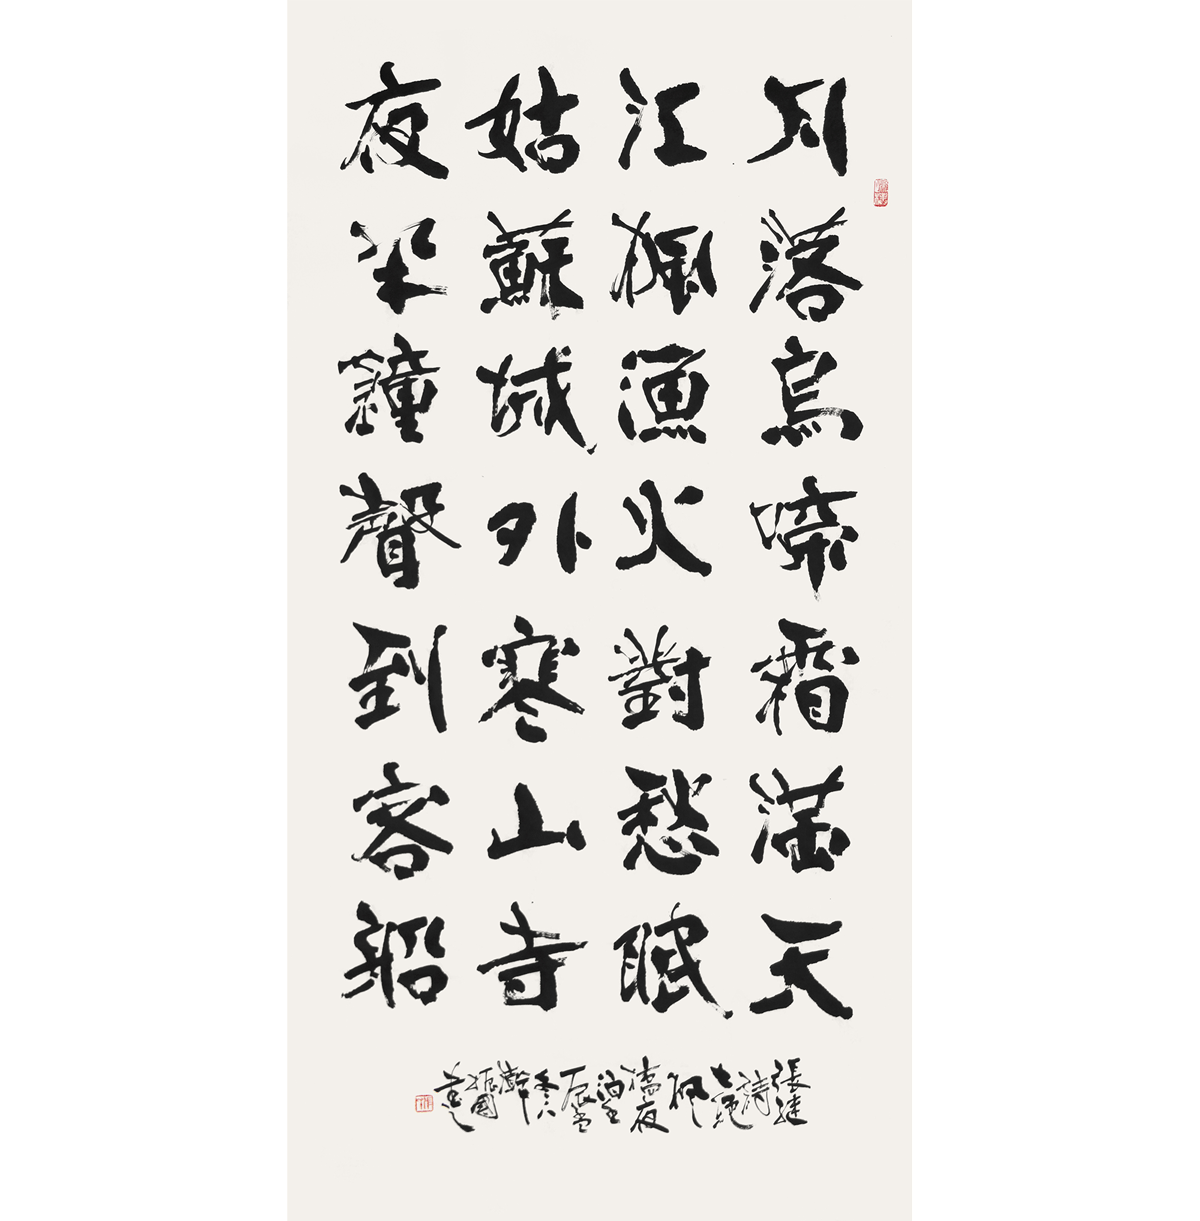 月落烏啼霜滿天
江楓漁火對愁眠
姑蘇城外寒山寺
夜半鐘聲到客船
張繼
詩
七絕
楓
橋夜
泊
辰
振國